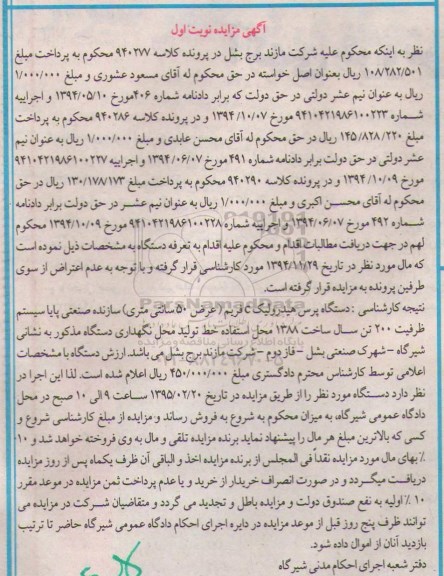 آگهی مزایده نوبت اول
نظر به اینکه محکوم علیه شرکت مازند برج بشل در پرونده کلاسه ۹۴۰۲۷۷ محکوم به پرداخت مبلغ
۱۰۸/۲۸۲/۵۰۱ ریال بعنوان اصل خواسته در حق محکوم له آقای مسعود عشوری و مبلغ ۱/۰۰۰/۰۰۰
ریال به عنوان نیم عشر دولتی در حق دولت که برابر دادنامه شماره ۴۰۶مورخ ۱۳۹۴/۰۵/۱۰ و اجراییه
شماره ۹۴۱۰۴۲۱۹۸۶۱۰۰۲۲۳ مورخ ۱۳۹۴/۱۰/۰۷ و در پرونده کلاسه ۹۴۰۲۸۶ محکوم به پرداخت
مبلغ ۱۴۵/۸۲۸/۲۲۰ ریال در حق محکوم له آقای محسن عابدی و مبلغ ۱/۰۰۰/۰۰۰ ریال به عنوان نیم
عشر دولتی در حق دولت برابر دادنامه شماره ۴۹۱ مورخ ۱۳۹۴/۰۶/۰۷ و اجراییه ۹۴۱۰۴۲۱۹۸۶۱۰۰۲۳۷
مورخ ۱۳۹۴/۱۰/۰۹ و در پرونده کلاسه ۹۴۰۲۹۰ محکوم به پرداخت مبلغ ۱۳۰/۱۷۸/۱۷۳ ریال در حق
محکوم له آقای محسن اکبری و مبلغ ۱/۰۰۰/۰۰۰ ریال به عنوان نیم عشر در حق دولت برابر دادنامه
شماره ۴۹۲ مورخ ۱۳۹۴/۰۶/۰۷ و اجراییه شماره ۹۴۱۰۴۲۱۹۸۶۱۰۰۲۲۸ مورخ ۱۳۹۴/۱۰/۰۹ محکوم
لهم در جهت دریافت مطالبات اقدام و محکوم علیه اقدام به تعرفه دستگاه به مشخصات ذیل نموده است
که مال مورد نظر در تاریخ ۱۳۹۴/۱۱/۲۹ مورد کارشناسی قرار گرفته و با توجه به عدم اعتراض از سوی
طرفین پرونده به مزایده قرار گرفته است.
نتیجه کارشناسی : دستگاه پرس هیدرولیک C فریم (عرض ۵۰ سانتی متری) سازنده صنعتی پایا سیستم
ظرفیت ۲۰۰ تن سال ساخت ۱۳۸۸ محل استفاده خط تولید محل نگهداری دستگاه مذکور به نشانی
شیرگاه – شهرک صنعتی بشل – فاز دوم – شرکت مازند برج بشل می باشد. ارزش دستگاه با مشخصات
اعلامی توسط کارشناس محترم دادگستری مبلغ ۴۵۰/۰۰۰/۰۰۰ ریال اعلام شده است. لذا این اجرا در
نظر دارد دستگاه مورد نظر را از طریق مزایده در تاریخ ۱۳۹۵/۰۲/۲۰ ساعت ۹ الی ۱۰ صبح در محل
دادگاه عمومی شیرگاه، به میزان محکوم به شروع به فروش رساند و مزایده از مبلغ کارشناسی شروع و
کسی که بالاترین مبلغ هر مال را پیشنهاد نماید برنده مزایده تلقی و مال به وی فروخته خواهد شد و ۱۰
٪ بهای مال مورد مزایده نقداً فی المجلس از برنده مزایده اخذ و الباقی آن ظرف یکماه پس از روز مزایده
دریافت میگردد و در صورت انصراف خریدار از خرید و یا عدم پرداخت ثمن مزایده در موعد مقرر
۱۰ ٪ اولیه به نفع صندوق دولت و مزایده باطل و تجدید می گردد و متقاضیان شرکت در مزایده می
توانند ظرف پنج روز قبل از موعد مزایده در دایره اجرای احکام دادگاه عمومی شیرگاه حاضر تا ترتیب
بازدید آنان از اموال داده شود.
دفتر شعبه اجرای احکام مدنی شیرگاه